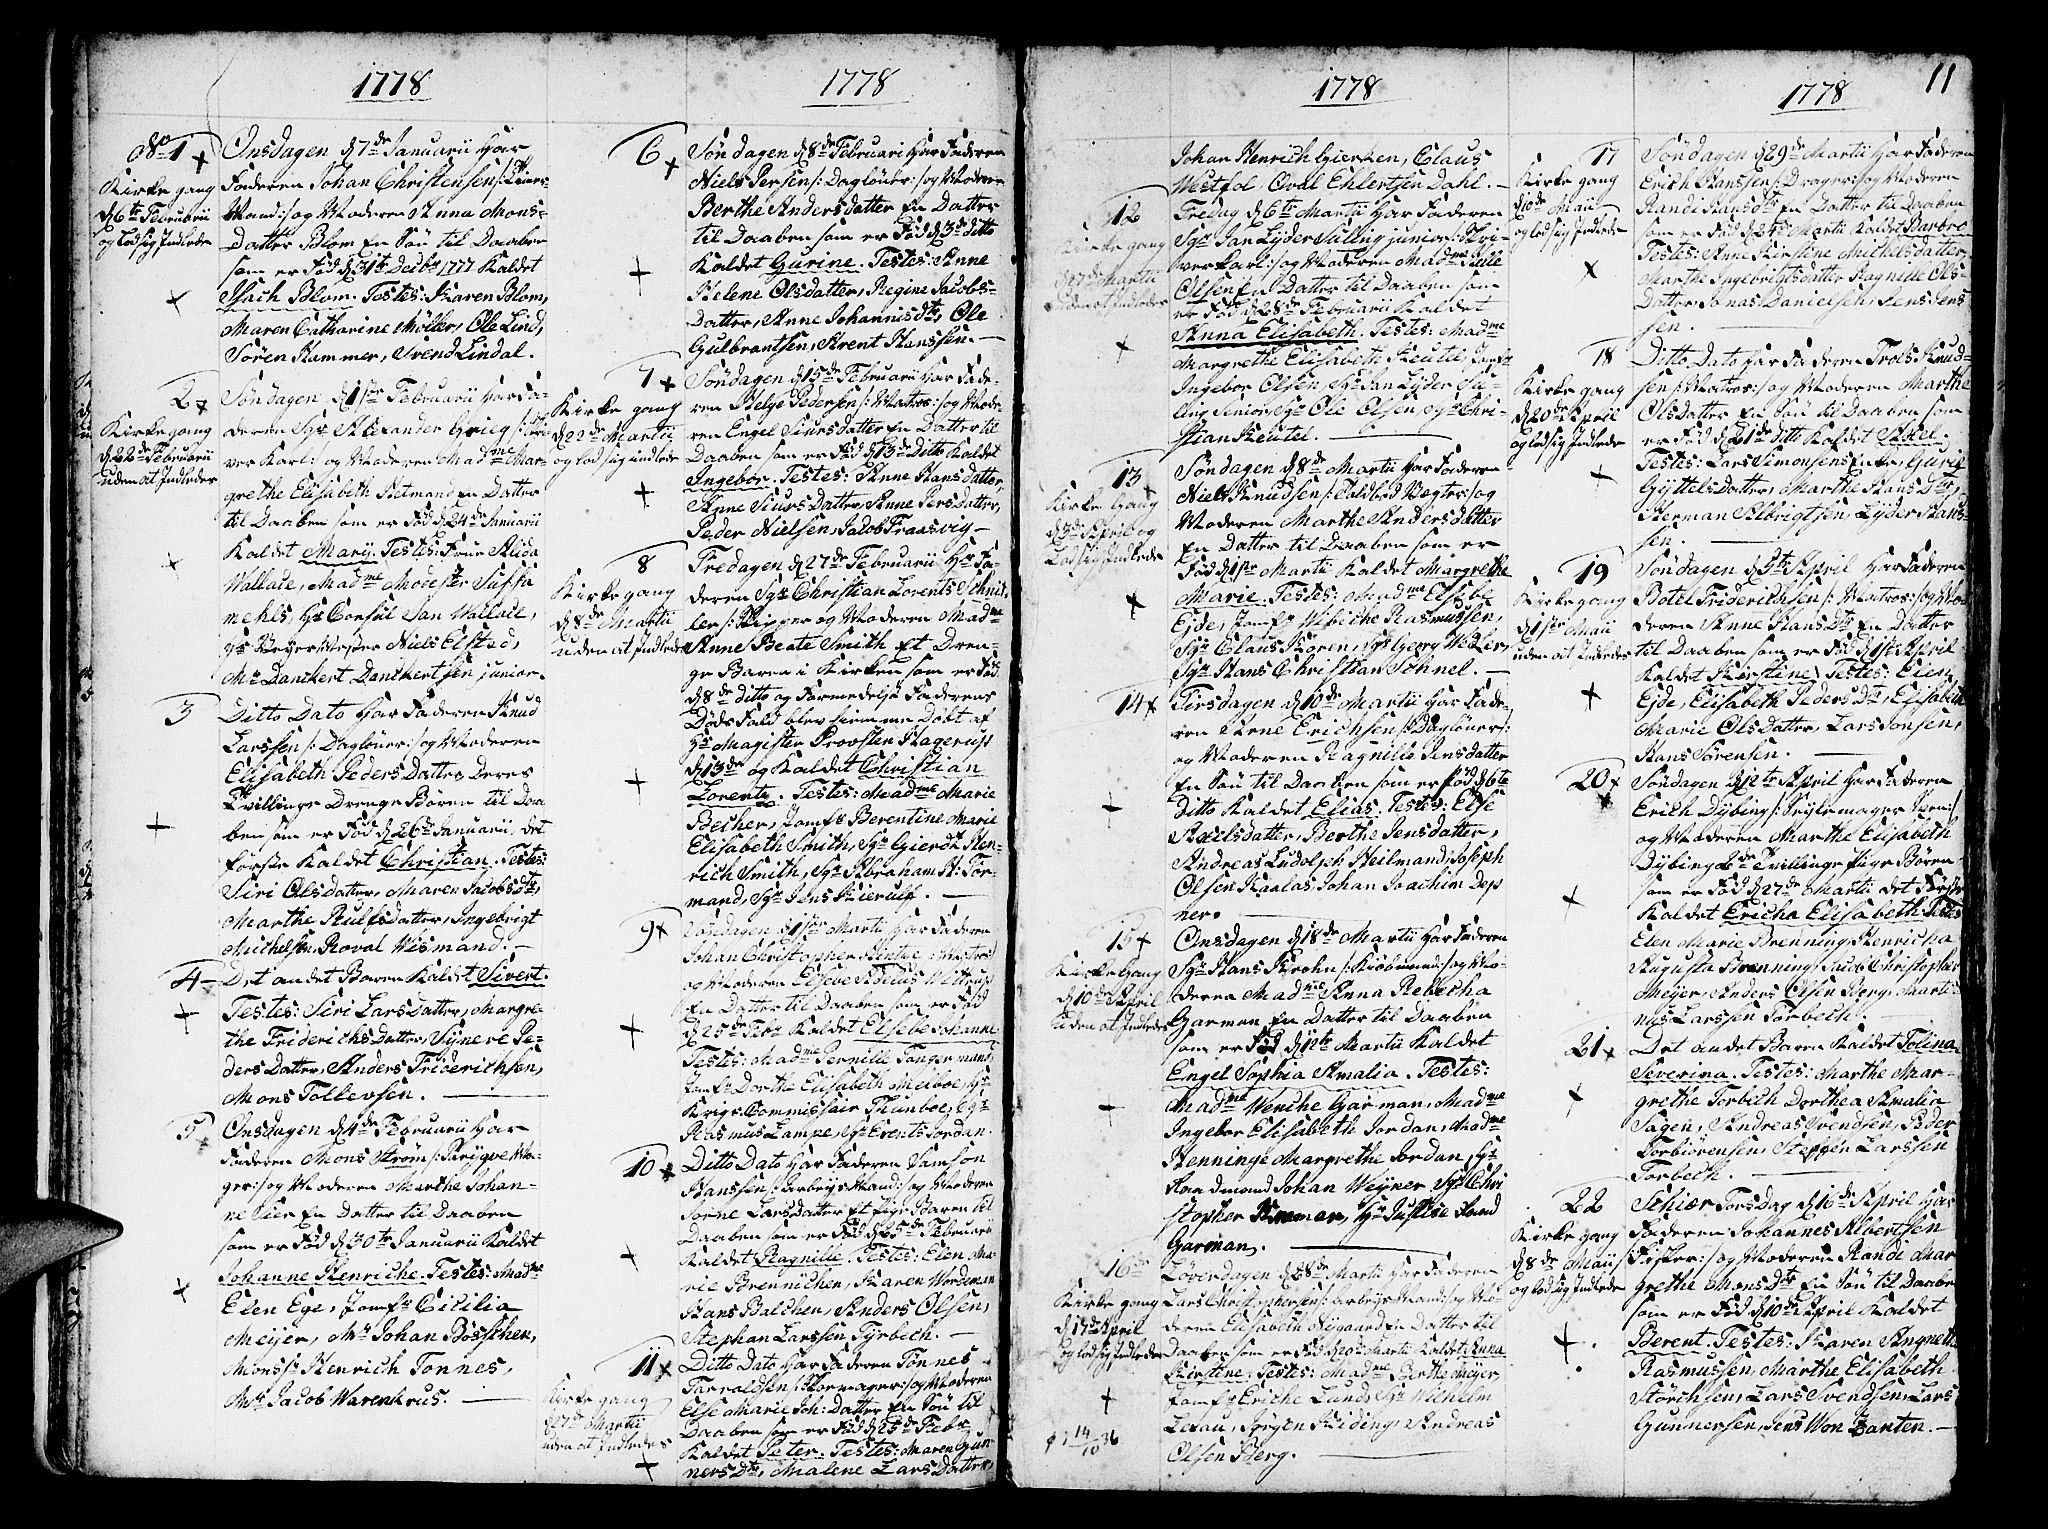 1778
No 1
Kirke gang
d 6te Februarii
og lod sig Indlede
Onsdagen d 7de Januarii Har
Faderen Johan Christensen
Mand:/ og Moderen Anna Mons-
Datter Blom En Søn til Daaben
som er Fød d 31te Decbr 1777 Kaldet
Isach Blom. Testes: Karen Blom,
Maren Catharine Møller, Ole Lind,
Søren Hammer, Svend Lindal.
2
Kirke gang
d 22de Februarii
uden at Indledes
Søndagen d 1ste Februarii Har Fa-
deren Sgr Alexander Grieg /: Skri-
ver Karl:/ og Moderen Madme Mar-
grethe Elisabeth Hetmand En Datter
til Daaben som er Fød d 24de Januarii
Kaldet Mary. Testes: Frue Alida
Wallace, Madme Modester Sussa
mehls, Hr Consul Jan Wallace,
Hr Niels Elstad,
Mr Danckert Danckertsen junior
3
Ditto Dato Har Faderen Knud
Larssen /: Dagløner:/ og Moderen
Elisabeth Peders Datter Deres
Tvillinge Drenge Børen til Daa
ben som er Fød d 26de Januarii, det
første Kaldet Christian. Testes:
Siri Olsdatter, Maren Jacobsdtr,
Marthe Rulfsdatter, Ingebrigt
Michelsen, Roval Wismand.
4
Det andet Baren Kaldet Sivert.
Testes: Siri Lars Datter, Margre-
the Friderichs Datter, Synneve Pe-
ders Datter, Anders Friderichsen,
Mons Tollevsen.
5
Onsdagen d 4de Februarii Har
Faderen Mons Strøm
ger:/ og Moderen Marthe Johan-
ne En Datter til Daaben
som er Fød d 30te Januarii Kaldet
Johanne Henriche. Testes: Madme
Elen Ege, Jomfr Cicilia
Meyer, Mr Johan Bøsscher,
Monsr Henrich Tonnes,
Mr Jacob Warenhrus.
1778
6
Søndagen d 8de Februari Har Faderen
Niels Persen /: Dagløner:/ og Moderen
Berthe Andersdatter En Datter
til Daaben som er Fød d 3de ditto
Kaldet Gurine. Testes: Anne
Helene Olsdatter, Regine Jacobs-
Datter, Anne Johannisdtr, Ole
Gulbrantsen, Arent Hanssen.
7
Kirke gang
d 22de Martii
og lod sig indlede
Søndagen d 15de Februarii Har Fade-
ren Helge Pedersen /: Matros:/ og Mode-
ren Engel Siursdatter En Datter til
Daaben som er Fød d 13de Ditto Kaldet
Ingebor. Testes: Anne Hansdatter,
Anne Siurs Datter, Anne Persdatter,
Peder Nielsen, Jacob Fraasvig
8
Kirke gang
d 8de Martii
uden at Indledes
Fredagen d 27de Februarii Hr Fa-
deren Sgr Christian Lorents Schnit-
ler /: Skipper og Moderen Madme
Anne Beate Smith Et Dren-
ge Baren i Kirken som er Fød
d 8de ditto og Formedelst Faderens
Døds Fald blev hiemme Døbt af
Hr Magister Provsten Hagerup
d 13de og Kaldet Christian
Lorentz. Testes: Madme Marie
Becher, Jomfr Berentine Marie
Elisabeth Smith, Sgr Gierdt Hen-
rich Smith, Sgr Abraham St: For-
mand, Sgr Jens Kierulf.
9
Søndagen d 1ste Martii Har Faderen
Johan Christopher Hintze /: Matros:/
og Moderen Elsebe
En Datter til Daaben som er Fød
d 25de Febr Kaldet Elsebe Johanne
Testes: Madme Pernille Tangermand
Jomfr Dorthe Elisabeth Meiboe, Hr
Krigs Commissair Thunboe, Sgr
Rasmus Lampe, Sgr Events Jordan.
10
Ditto Dato Har Faderen Samson
Hanssen /: Arbeys Mand:/ og Moderen
Sorne Larsdatter Et Pige Baren til
Daaben som er Fød d 25de Februarii
Kaldet Ragnilde. Testes: Elen Ma-
rie Brennichen, Karen Wordeman
Hans Balchen, Anders Olsen,
Stephan Larssen Tyrbech.
11
Kirke gang
Martii
uden at Indledes
Ditto Dato Har Faderen Tønnes
Tarraldsen /: Skomager:/ og Moderen
Else Marie Joh: Datter En Søn til
Daaben som er Fød d 25de Febr
Kaldet Peter. Testes: Maren Gun-
ners Dtr, Malene Lars Datter,
1778
Johan Henrich Gierken, Claus
Westfal, Ovel Ehlertsen Dahl.
12
Kirke gang
d 27de Martii
uden at Indledes
Fredag d 6te Martii Har Faderen
Sgr Jan Lyder Suling junior /: Skri-
verkarl:/ og Moderen Madme Kelle
Olsen En Datter til Daaben som
er Fød d 28de Februarii Kaldet
Anna Elisabeth. Testes: Madme
Margrethe Elisabeth Keutel, Jomfr
Ingebor Olsen, Sgr Jan Lyder Su-
ling Senior, Sgr Ole Olsen, Sgr Chri-
stian Keutel.
13
Kirke Gang
d 3de April og
Lod sig Indlede
Søndagen d 8de Martii Har Faderen
Niels Knudsen /: Toldbod Wægter:/ og
Moderen Marthe Andersdatter
En Datter til Daaben som er
Fød d 1ste Martii Kaldet Margrethe
Marie. Testes: Madme Elsebe
Ejde, Jomfr Wibiche Rasmussen,
Sgr Claus Koren, Sgr Georg Weber,
Sgr Hans Christian Sohnel.
14
Tirsdagen d 10de Martii Har Fade-
ren Arne Erichsen /: Dagløner:/
og Moderen Ragnille Jensdatter
En Søn til Daaben som er Fød d 6te
Ditto Kaldet Elias. Testes: Else
Axelsdatter, Berthe Jensdatter,
Andreas Ludolph Heilmand, Joseph
Olsen Kaalas, Johan Joachim Dep
ner.
15
Kirke Gang
d 10de April
uden at Indledes
Onsdagen d 18de Martii Har Faderen
Sgr Hans Krohn /: Kiøbmand:/ og Mo-
deren Madme Anna Rebecha
Garman En Datter til Daaben
som er Fød d 12te Martii Kaldet
Engel Sophia Amalia. Testes:
Madme Wenche Garman, Madme
Ingebor Elisabeth Jordan, Madme
Henninge Margrethe Jordan, Hr
Raadmand Johan Weyner, Sgr Chri
stopher Hammer, Hr Justice Raad
Garman.
16
Kirke gang
d 17de April
og lod sig Indlede
Løverdagen d 28de Martii Har Faderen
Lars Christophersen /: Arbeys Mand:/ og Mo-
deren Elisabeth Nygaard En Datter til
Daaben som er Fød d 20de Martii Kaldet Anna
Kirstine. Testes: Madme Berthe Meyer,
Jomfr Eriche Lund, Sgr Wilhelm
Lexau, Jørgen Riding, Andreas
Olsen Berg.
1778
11
17
Kirke gang
d 10de Maii
og lod sig Indlede
Søndagen d 29de Martii Har Faderen
Erich Hanssen /: Drager:/ og Moderen
Randi Hansdtr En Datter til Daaben
som er Fød d 24de Martii Kaldet Barbre
Testes: Anne Kirstine Michelsdatter,
Marthe Ingebrigtsdatter, Ragnille Ols-
Datter, Jonas Danielsen, Jens Jens
sen.
18
Kirke gang
d 20de April
og lod sig Indlede
Ditto Dato Har Faderen Trols Knud-
sen /: Matros:/ og Moderen Marthe
Olsdatter En Søn til Daaben som
er Fød d 21de ditto Kaldet Axel.
Testes: Lars Simonsens Enke, Guri
Gyttels Datter, Marthe Hans Dtr,
Herman Albrigtsen, Lyder Hans-
sen.
19
Kirke gang
d 1ste Maii
uden at Indledes
Søndagen d 5te April Har Faderen
Botel Friderichsen /: Matros:/ og Mo-
deren Anne Hans Dtr En Datter
til Daaben som er Fød d 1ste April
Kaldet Kirstine. Testes: Elen
Ejde, Elisabeth Peders Dtr, Elisabeth
Marie Olsdatter, Lars Jonsen,
Hans Sørensen.
20
Søndagen d 12te April Har Faderen
Erich Dybing
og Moderen Marthe Elisabeth
Dybing Tvillinge Pige Børen
som er Fød d 27de Martii det Første
Kaldet Ericha Elisabeth. Testes
Elen Marie Brenning, Henricha
Augusta Brenning, Jacob Christopher
Meyer, Anders Olsen Berg, Marti-
nus Larssen Torbech.
21
Det andet Baren Kaldet Tolina
Severina. Testes: Marthe Mar-
grethe Torbech, Dorthea Amalia
Sagen, Andreas Svendsen, Peder
Torbiørensen, Steffen Larssen
Torbech.
22
Kirke gang
d 8de Maii
og lod sig Indlede
Schiær Torsdag d 16de April Har
Faderen Johannes Albertsen
/: Fisker:/ og Moderen Randi Mar-
grethe Mons Dtr En Søn til Daaben
som er Fød d 10de April Kaldet
Berent. Testes: Karen Angnetha
Rasmussen, Marthe Elisabeth
Størchsen, Lars Svendsen, Lars
Gunnersen, Jens Won Zanten.